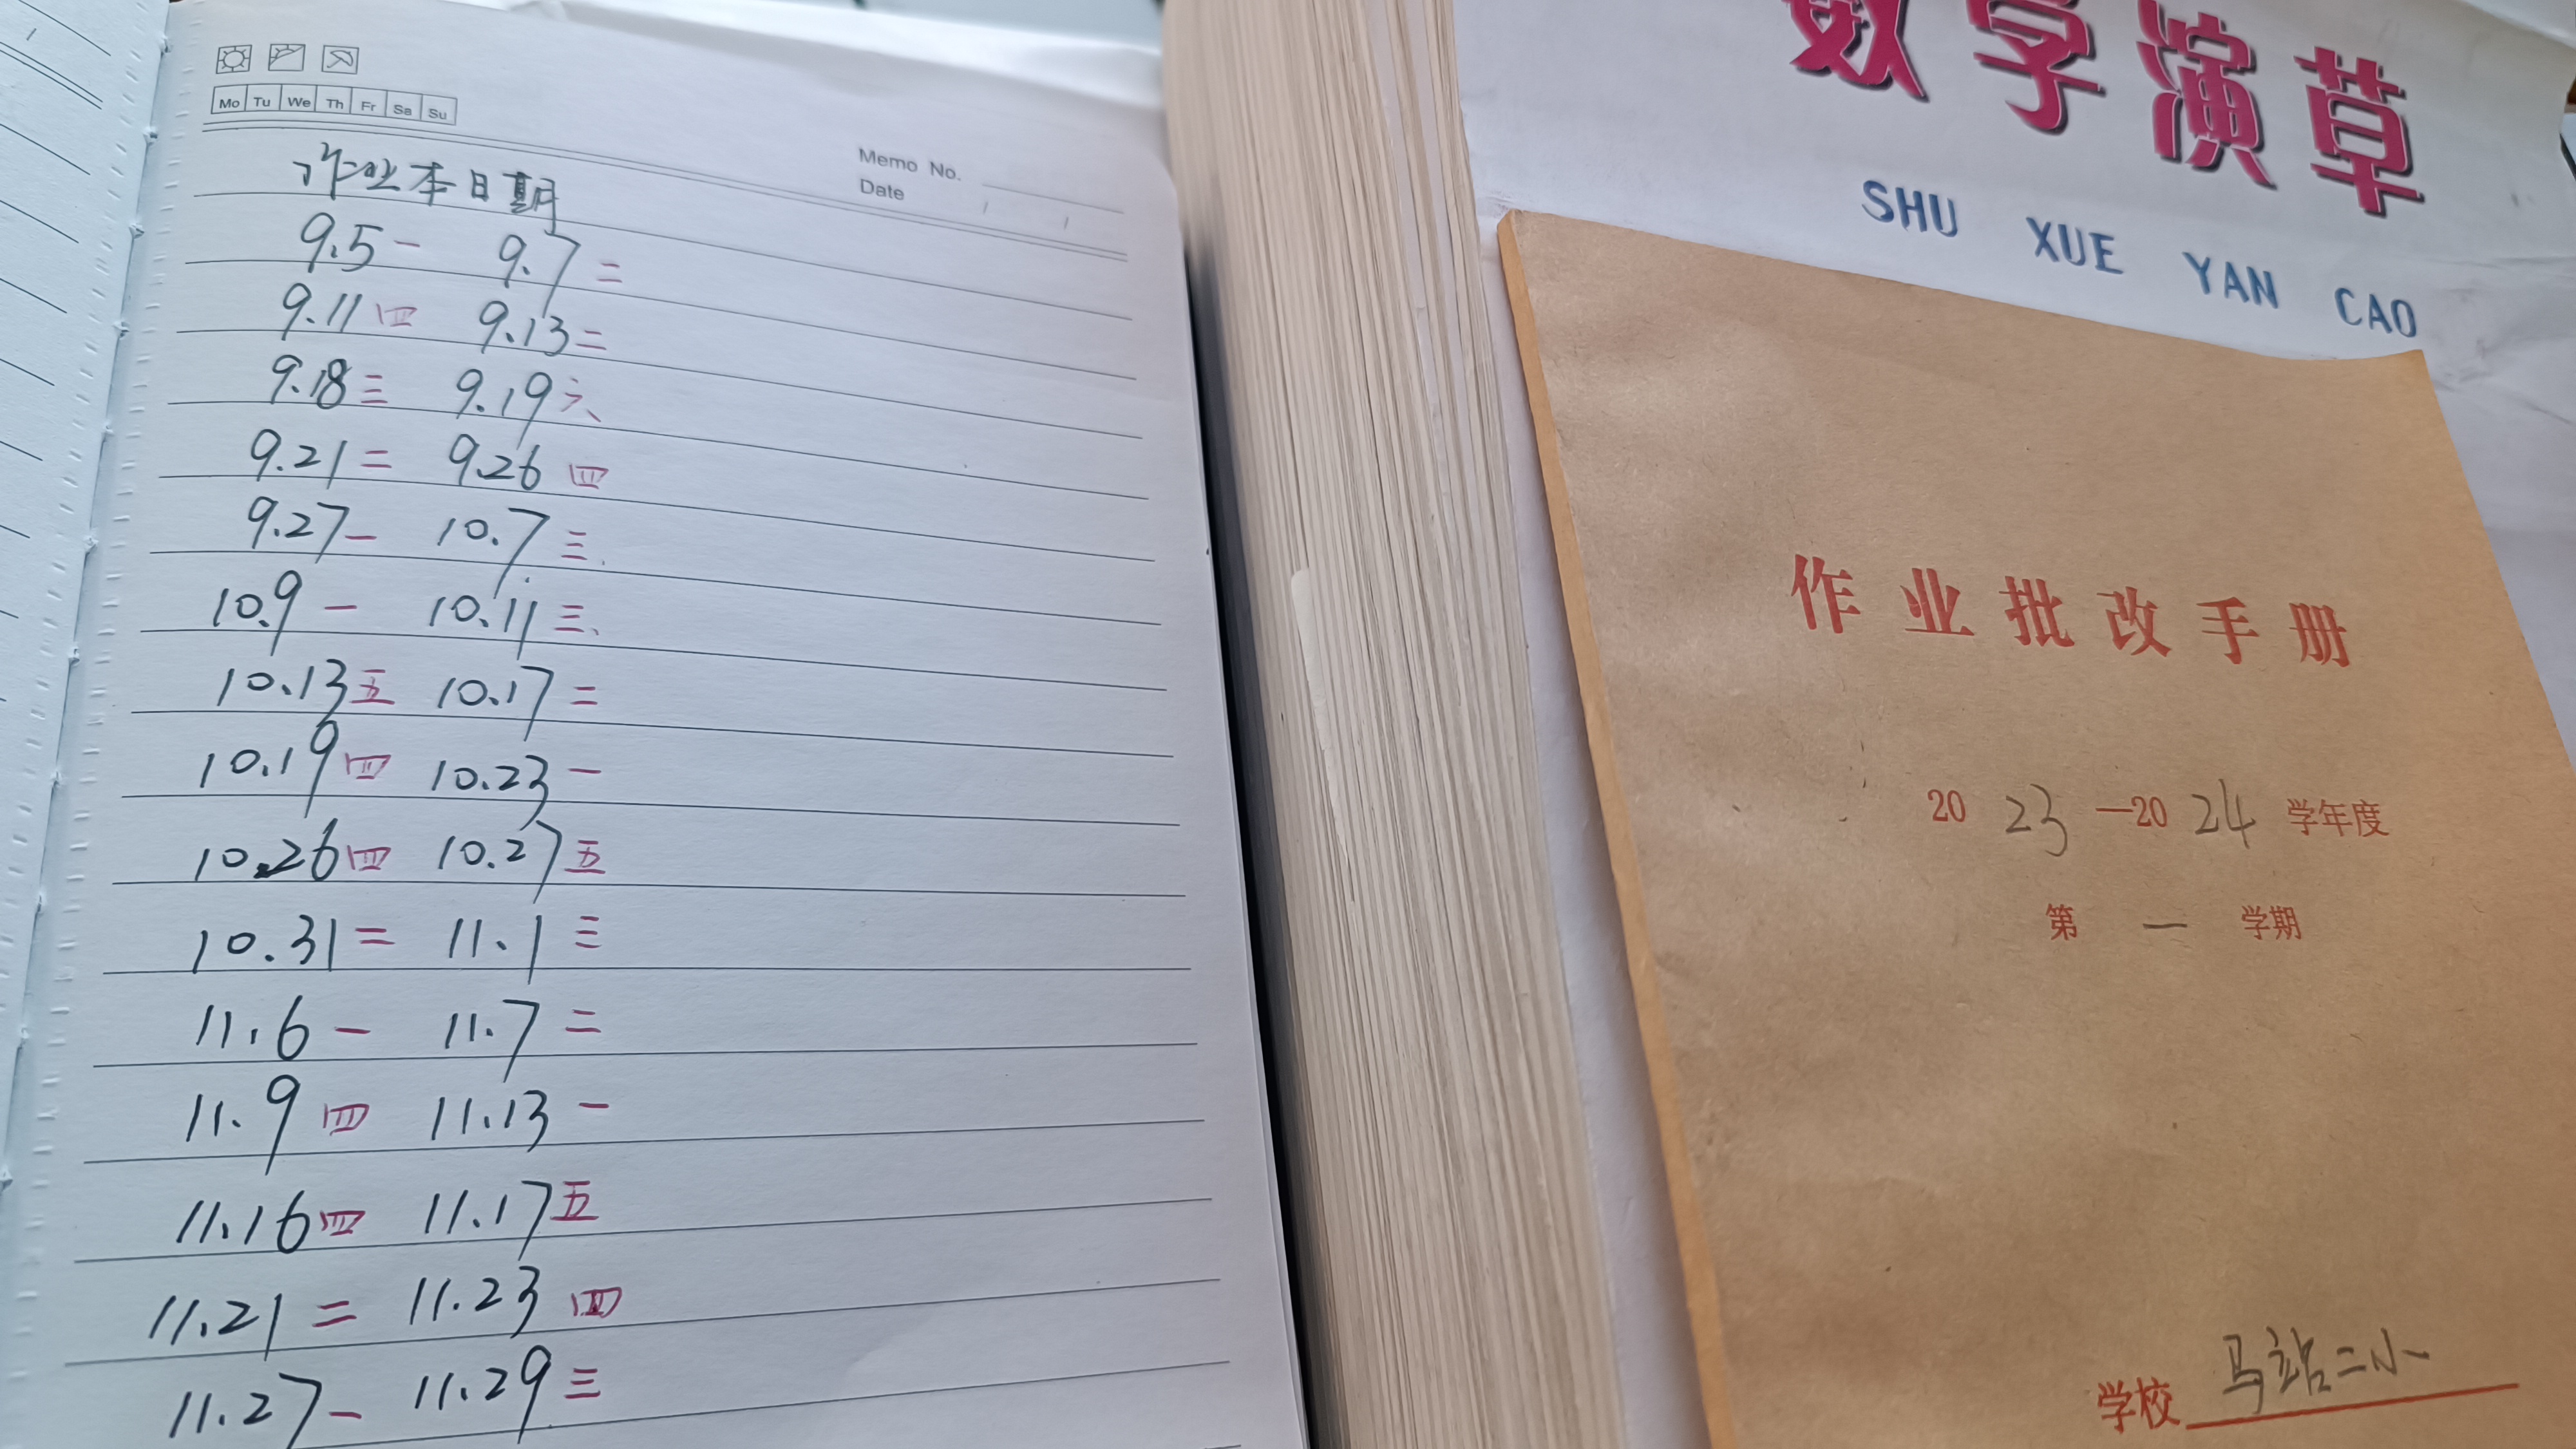 Mo Tu We Th Fr Sa Su
Memo No.
Date
作业本日期
9.5一 9.7二
9.11四 9.13二
9.18三 9.19六
9.21二 9.26四
9.27一 10.7三
10.9一 10.11三
10.13五 10.17二
10.19四 10.23一
10.26四 10.27五
10.31二 11.1三
11.6一 11.7二
11.9四 11.13一
11.16四 11.17五
11.21二 11.23四
11.27一 11.29三
数学演草
SHU XUE YAN CAO
作业批改手册
2023—2024学年度
第一学期
学校 马站二小